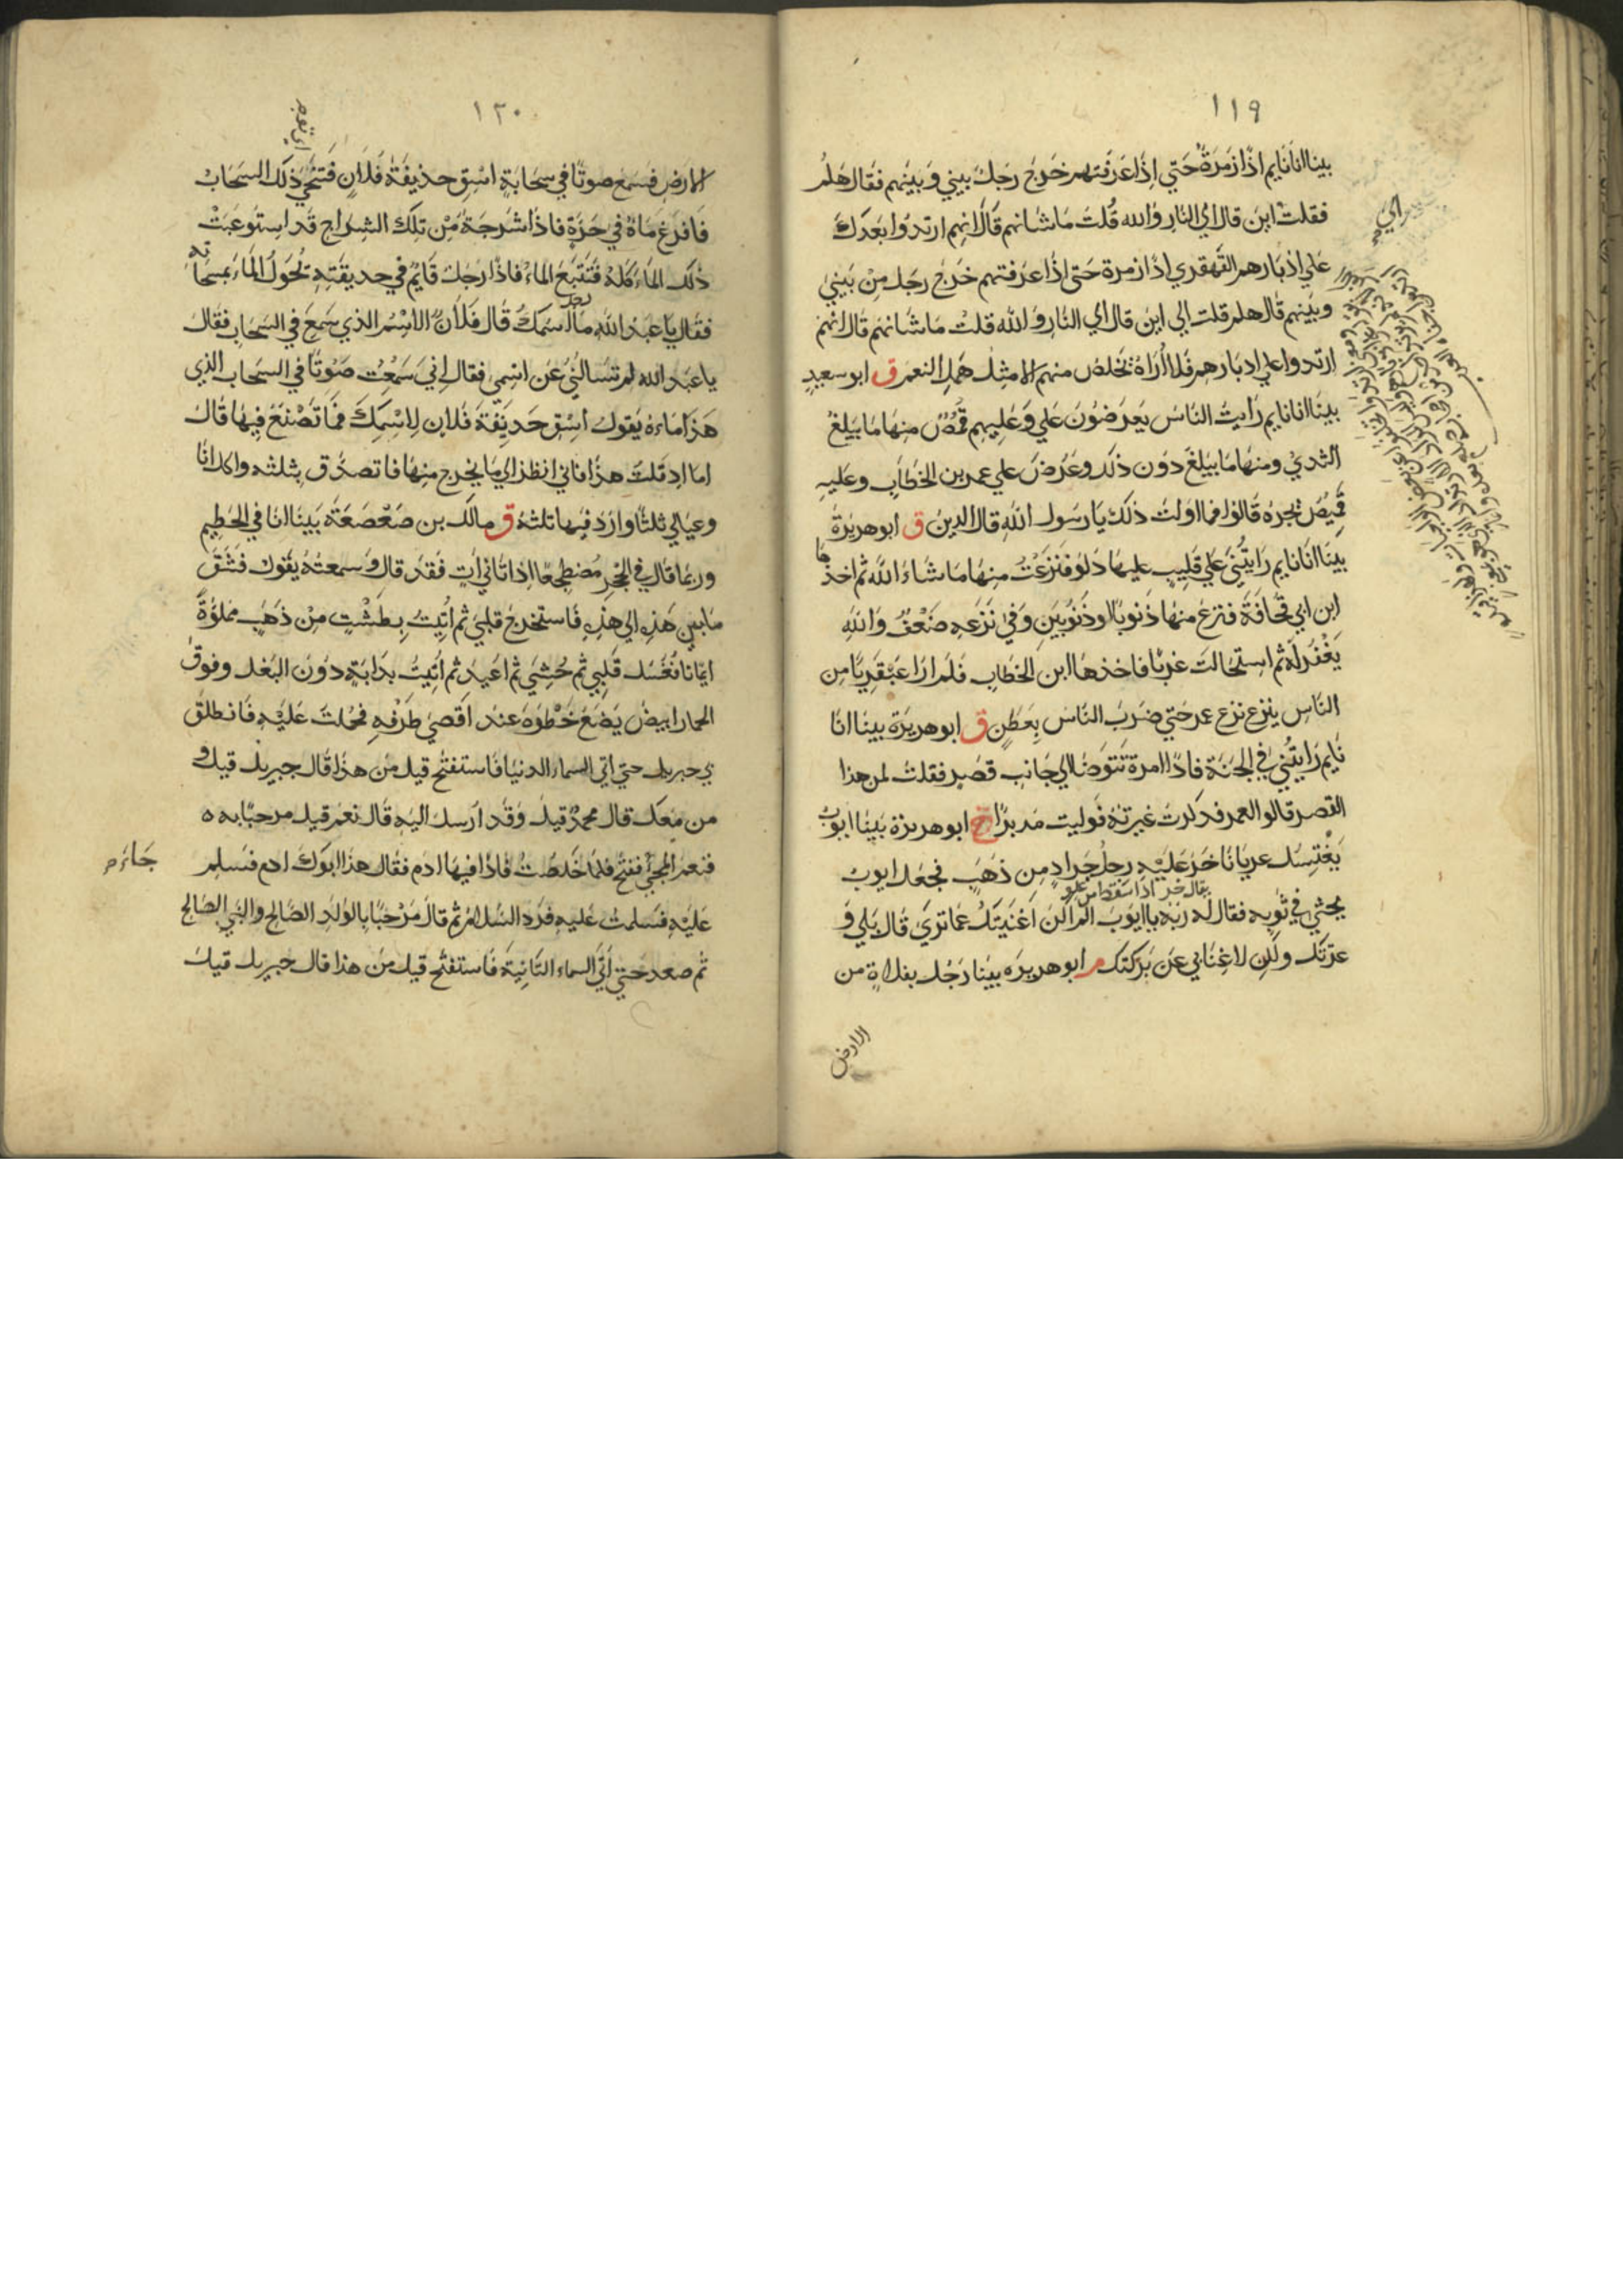 ١١٩
بينا انا نايم اذا زمرة حتي اذا عرفتهم خرج رجل بيني وبينهم فقال هلم
فقلت اين قال الي النار والله قلت ما شانهم قال انهم ارتدوا بعدك
علي ادبارهم القهقري ثم اذا زمرة حتي اذا عرفتهم خرج رجل من بيني
وبينهم قال هلم قلت الي اين قال الي النار والله قلت ما شانهم قال انهم
ارتدوا علي ادبارهم فلا أراه يخلص منهم الا مثل همل النعم ق ابو سعيد
بينا انا نايم رايت الناس يعرضون علي وعليهم قمص منها ما يبلغ
الثدي ومنها ما يبلغ دون ذلك وعرض علي عمر بن الخطاب وعليه
قميص يجره قالوا فما اولت ذلك يا رسول الله قال الدين ق ابو هريرة
بينا انا نايم رايتني علي قليب عليها دلو فنزعت منها ما شاء الله ثم اخذها
ابن ابي قحافة فنزع منها ذنوبا او ذنوبين وفي نزعه ضعف والله
يغفر له ثم استحالت غربا فاخذها ابن الخطاب فلم ار عبقريا من
الناس ينزع نزع عمر حتي ضرب الناس بعطن ق ابو هريرة بينا انا
نايم رايتني في الجنة فاذا امرة تتوضا الي جانب قصر فقلت لمن هذا
القصر قالوا لعمر فذكرت غيرته فوليت مدبرا خ ابو هريرة بينا ايوب
يغتسل عريانا خر عليه رجل جراد من ذهب فجعل ايوب
يقال خر اذا سقط من علو
يحثي في ثوبه فقال له ربه يا ايوب الم اكن اغنيتك عما تري قال بلي و
عزتك ولكن لا غنا بي عن بركتك م ابو هريره بينا رجل بفلاة من
الارض
١٢٠
الارض فسمع صوتا في سحابة اسق حديقة فلان فتنحي ذلك السحاب
فافرغ ماه في حرة فاذا شرجة من تلك الشراج قد استوعبت
ذلك الماء كله فتتبع الماء فاذا رجل قايم في حديقته يحول الماء بمسحاته
فقال يا عبد الله ما اسمك قال فلان الاسم الذي سمع في السحاب فقال
يا عبد الله لم تسالني عن اسمي فقال اني سمعت صوتا في السحاب الذي
هذا ماءه يقول اسق حديقة فلان لاسمك فما تصنع فيها قال
اما اذ قلت هذا فاني انظر الي ما يخرج منها فاتصدق بثلثه واكل انا
وعيالي ثلثا وارد فيها ثلثه ق مالك بن صعصعة بينا انا في الحطيم
وربما قال في الحجر مضطجعا اذ اتاني ات فقد قال وسمعته يقول فشق
ما بين هذه الي هذه فاستخرج قلبي ثم اتيت بطشت من ذهب مملوة
ايمانا فغسل قلبي ثم حشي ثم اعيد ثم اتيت بدابة دون البغل وفوق
الحمار ابيض يضع خطوه عند اقصي طرفه فحملت عليه فانطلق
بي جبريل حتي اتي السماء الدنيا فاستفتح قيل من هذا قال جبريل قيل و
من معك قال محمد قيل وقد ارسل اليه قال نعم قيل مرحبا به
فنعم المجئ ففتح فلما خلصت فاذا فيها ادم فقال هذا ابوك ادم فسلم
جاء
عليه فسلمت عليه فرد السلام ثم قال مرحبا بالولد الصالح والنبي الصالح
ثم صعد حتي اتي السماء الثانية فاستفتح قيل من هذا قال جبريل قيل